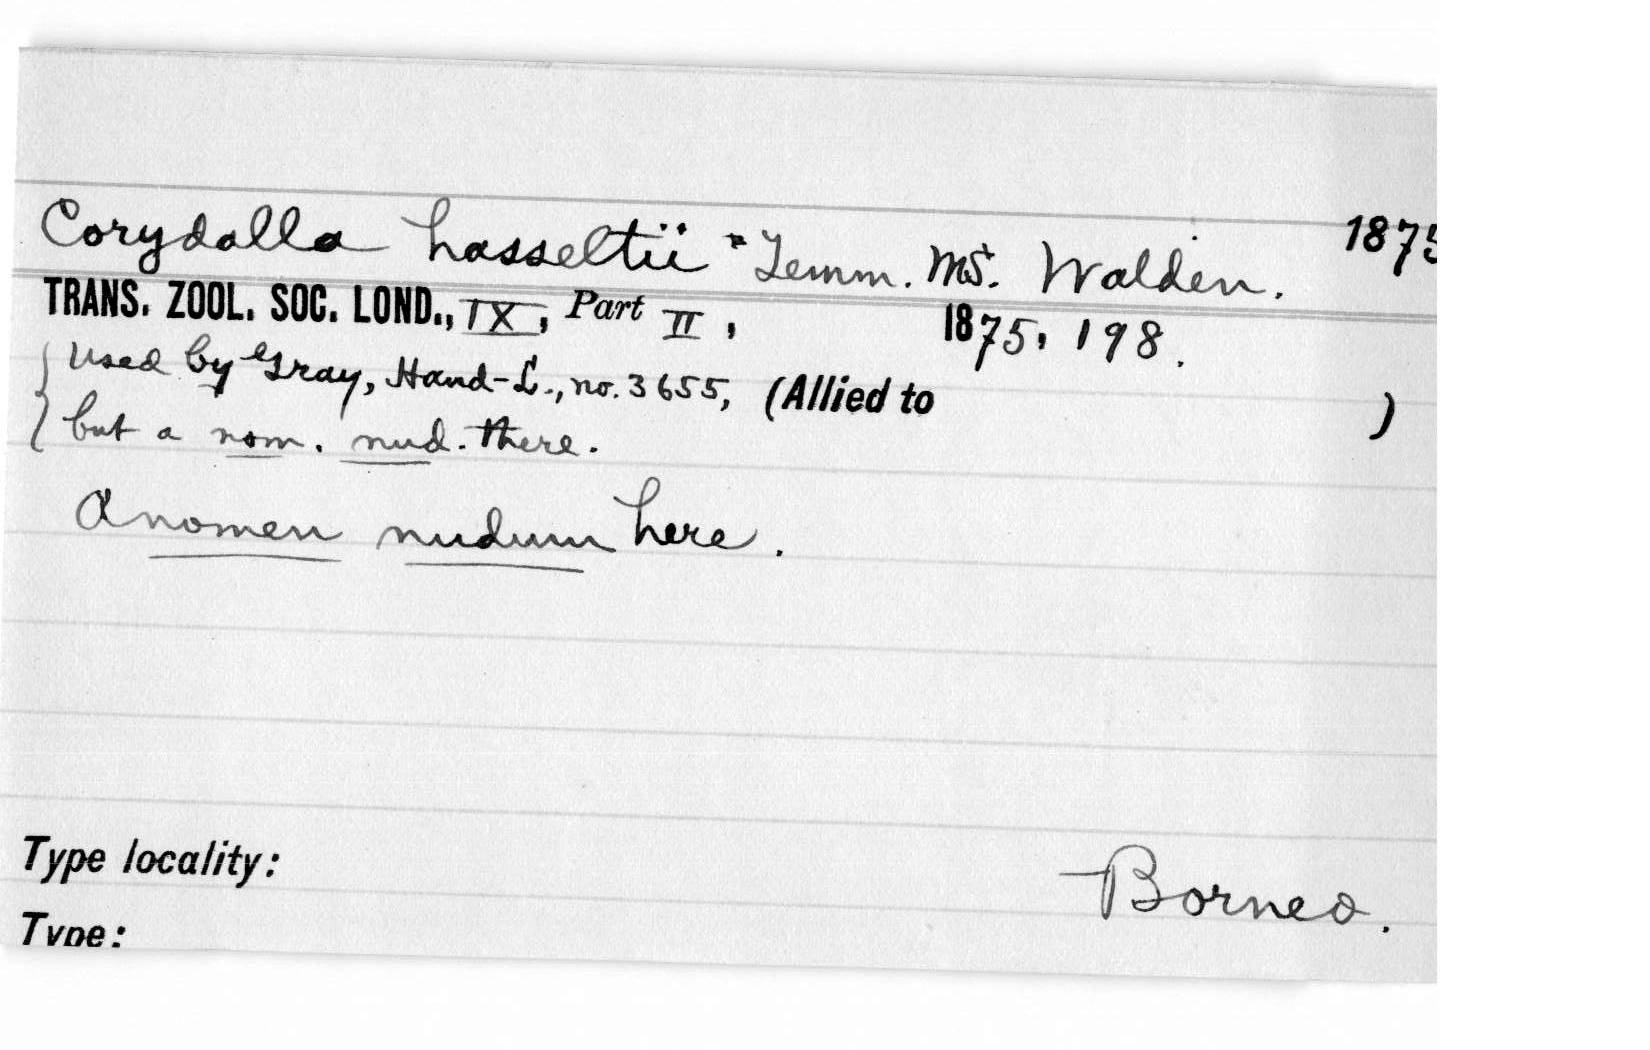 Corydalla hasseltii "Temm. MS. Walden. 1875
TRANS. ZOOL. SOC. LOND., IX, Part II, 1875, 198.
{ Used by Gray, Hand-L., no. 3655, (Allied to )
{ but a nom. nud. there.
A nomen nudum here.
Type locality: Borneo.
Type: